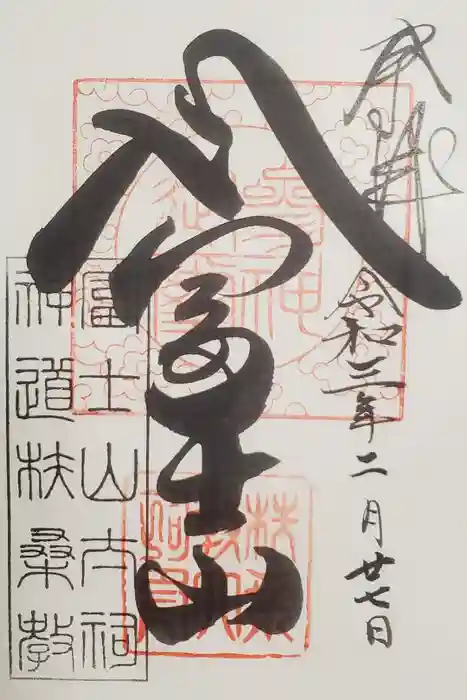 奉拝
令和三年二月廿七日
冨士山
富士山大祠
神道扶桑教